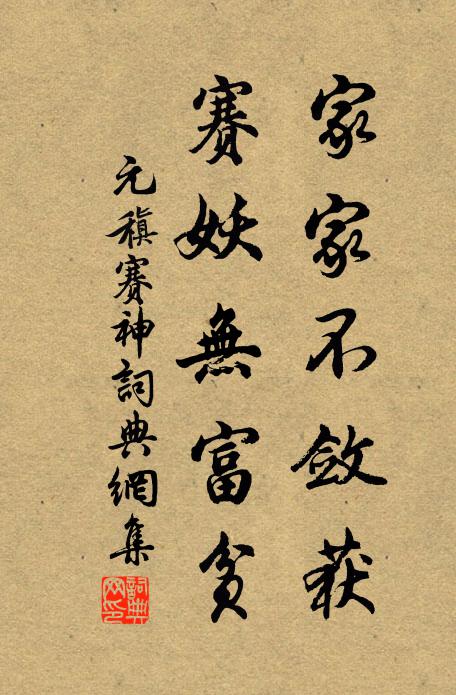 家家不斂获
賽妖無富貧
元稹賽神詞典網集
詞典网印